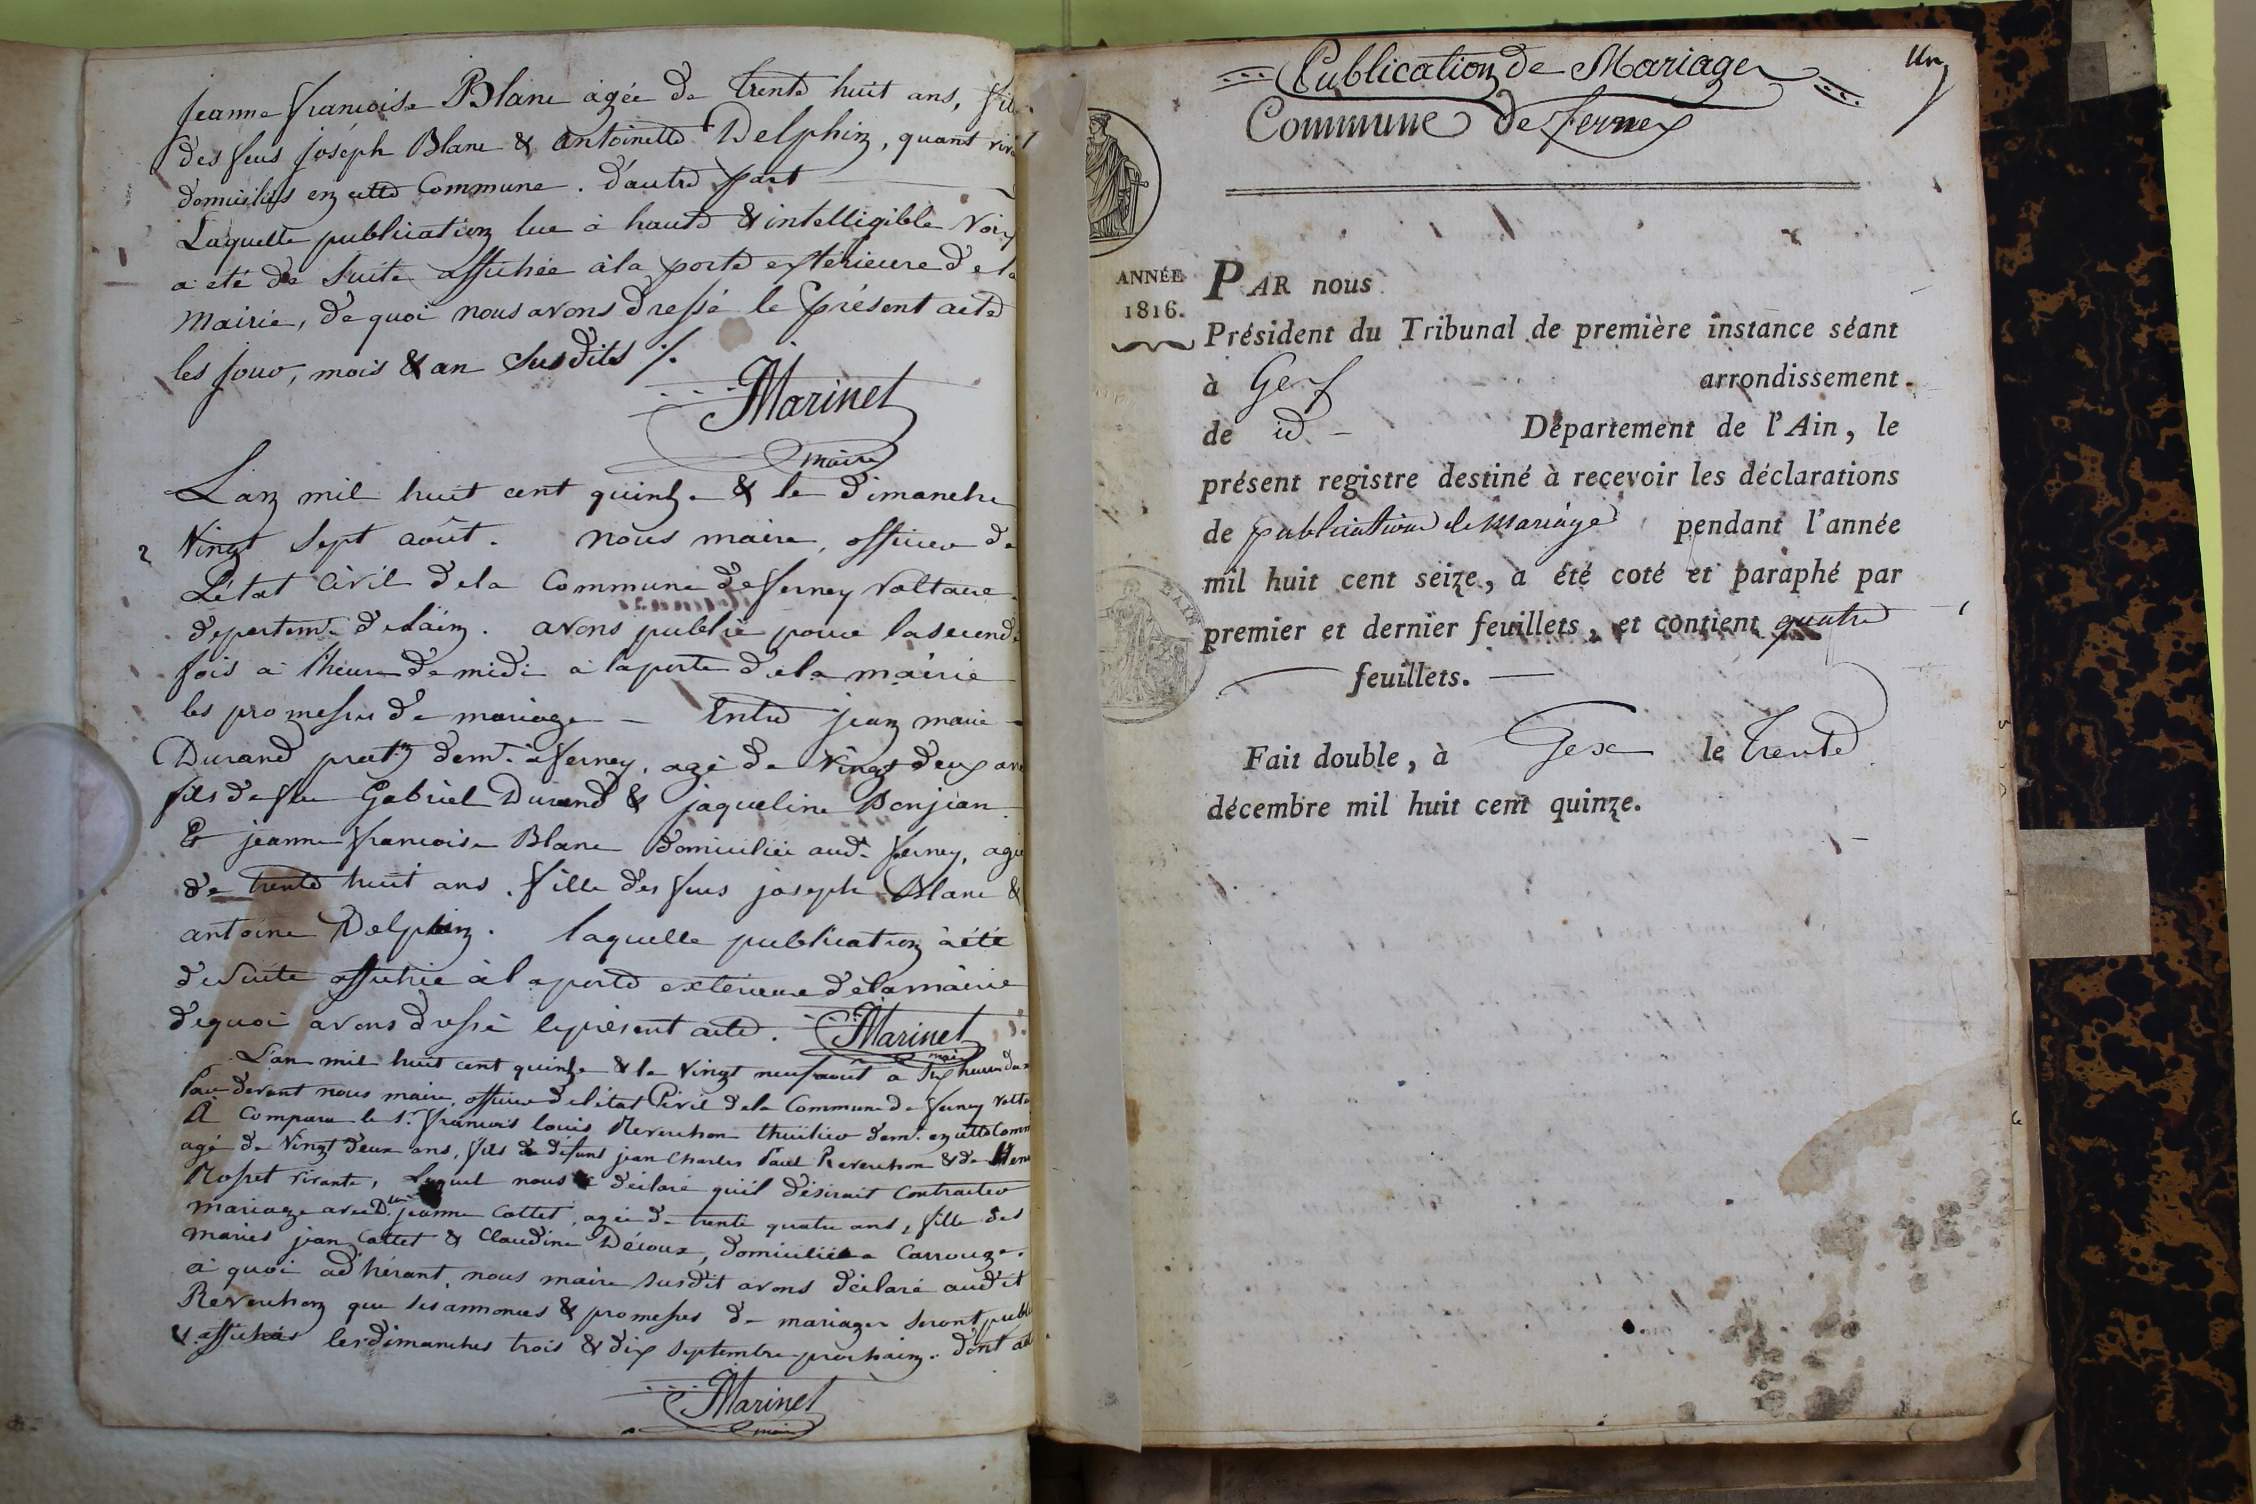 Jeanne françoise Blanc agée de trente huit ans, fil
des feus joseph Blanc & antoinette Delphin, quant viv
domiciliés en cette Commune. d'autre part
Laquelle publication lue à haute & intelligible Voix
a été de Suite affichée à la porte extérieure de la
Mairie, de quoi nous avons dressé le présent acte
les jour, mois & an susdits ./.
Marinet
maire
L'an mil huit cent quinze & le dimanche
Vingt Sept août. nous maire, officier de
L'état Civil de la Commune de ferney Voltaire
départemt. de l'ain. avons publié pour la seconde
fois à l'heure de midi à la porte de la mairie
les promesses de mariage - Entre jean marie
Durand demt. à ferney, agé de Vingt deux ans
fils de feu Gabriel Durand & jaqueline Donjean
Et jeanne françoise Blanc domiciliée audt. ferney, agée
de trente huit ans. fille des feus joseph Blanc &
antoine Delphin. laquelle publication a été
de suite affichée à la porte extérieure de la mairie
de quoi avons dressé le présent acte. Marinet
maire
L'an mil huit cent quinze & le Vingt neuf août à six heures du
Par devant nous maire, officier de l'état Civil de la Commune de ferney Volta
A Comparu le Sr. françois louis Reverchon demt. en cette Comm
agé de Vingt deux ans, fils de défunt jean Charles Paul Reverchon & de
Rosset vivante, Lequel nous a déclaré qu'il désirait Contracter
mariage avec Dlle. jeanne Cottet, agée de trente quatre ans, fille des
mariés jean Cottet & Claudine Découx, domiciliée a Carrouge.
à quoi adhérant, nous maire susdit avons déclaré audit
Reverchon que ses annonces & promesses de mariage seront publ
& affichés les dimanches trois & dix septembre prochain. dont acte
Marinet
maire
Un
Publication de Mariage
Commune de ferney
ANNÉE
1816.
PAR nous
Président du Tribunal de première instance séant
à Gex arrondissement
de id - Département de l'Ain, le
présent registre destiné à recevoir les déclarations
de publications de Mariage pendant l'année
mil huit cent seize, a été coté et paraphé par
premier et dernier feuillets, et contient quatre
feuillets.
Fait double, à Gex le trente
décembre mil huit cent quinze.